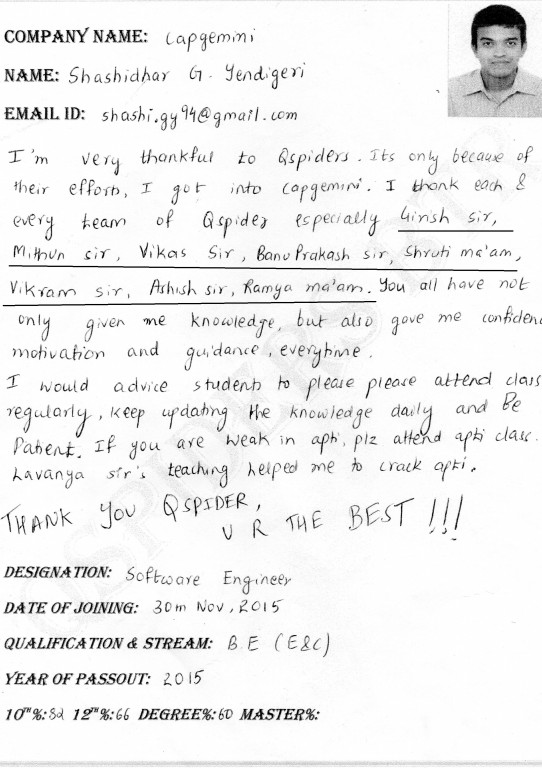 COMPANY NAME: Capgemini
NAME: Shashidhar G. Yendigeri
EMAIL ID: shashi.gy94@gmail.com
I'm very thankful to Qspiders. Its only because of
their efforts, I got into capgemini. I thank each &
every team of Qspider especially Girish sir,
Mithun sir, Vikas Sir, Banu Prakash sir, Shruti ma'am,
Vikram sir, Ashish sir, Ramya ma'am. You all have not
only given me knowledge, but also gave me confidenc
motivation and guidance, everytime.
I would advice students to please please attend class
regularly, keep updating the knowledge daily and Be
Patient. If you are weak in apti, plz attend apti class.
Lavanya sir's teaching helped me to crack apti.
THANK YOU QSPIDER,
U R THE BEST !!!
DESIGNATION: Software Engineer
DATE OF JOINING: 30th Nov, 2015
QUALIFICATION & STREAM: B.E (E&C)
YEAR OF PASSOUT: 2015
10TH%: 82 12TH%: 66 DEGREE%: 60 MASTER%: